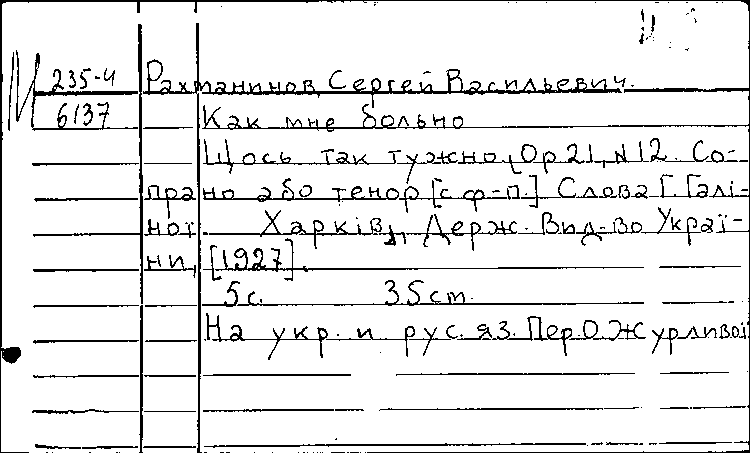 М 235-4 Рахманинов, Сергей Васильевич.
6137 Как мне больно
Щось так тужно, Ор 21, N 12. Со-
прано або тенор [с ф-п.] Слова Г. Галі-
ної. Харків, Держ. Вид-во Украї-
ни, [1927].
5 с. 35 ст.
На укр. и рус. яз. Пер О. Журливої